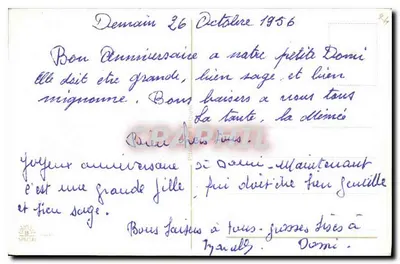 Demain 26 Octobre 1956
Bon Anniversaire a notre petite Domi
Elle doit etre grande, bien sage, et bien
mignonne. Bons baisers a vous tous
La tante, la mémée
Bons à tous.
Joyeux anniversaire à Domi. Maintenant
c'est une grande fille, qui doit être bien gentille
et bien sage.
Bons baisers à tous. grosses bises à
Domi.